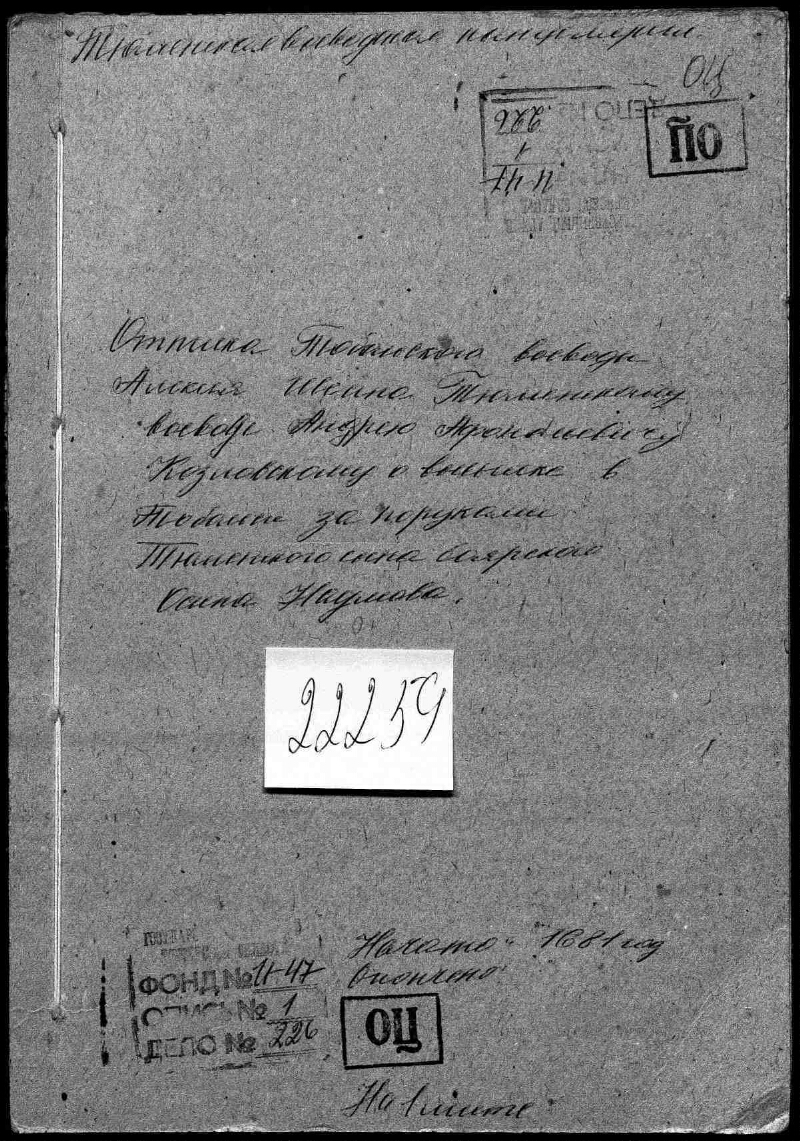 Тюменская воеводская канцелярия.
ОЦ
226
1
И-47
ОЦ
Отписка Тобольского воеводы
Алексея Тюменскому
воеводе Андрею Афанасьевичу
Козловскому о высылке в
Тобольск за поруками
Тюменского сына боярского
Осипа Наумова.
22259
ФОНД № И-47
ОПИСЬ № 1
ДЕЛО № 226
Начато 1681 год
Окончено
ОЦ
На 1 листе